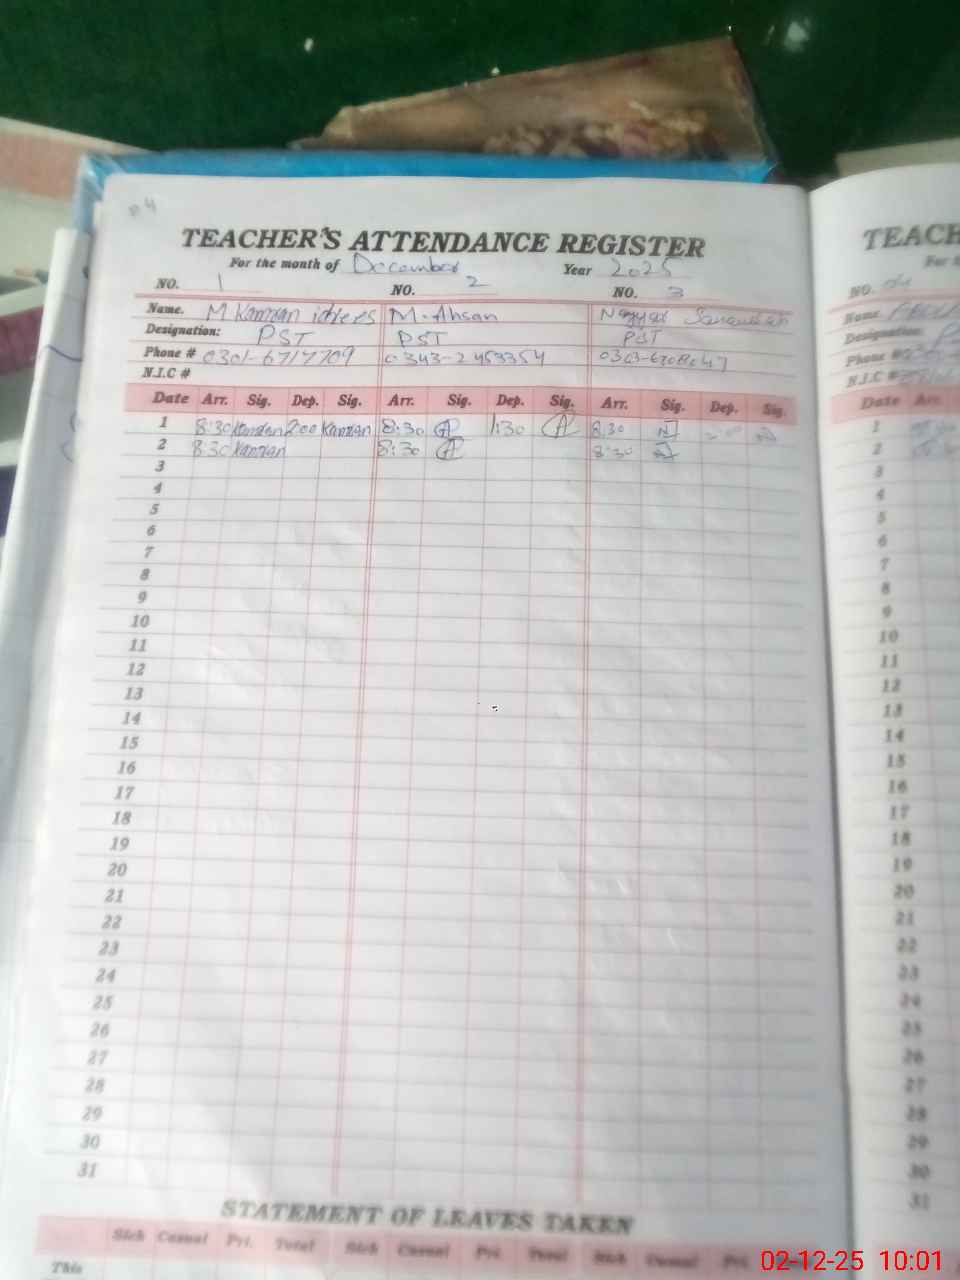 TEACHER'S ATTENDANCE REGISTER
For the month of December Year 2025
NO. 1 NO. 2 NO. 3
Name. M Kamran idrees M. Ahsan
Designation: PST PST PST
Phone # 0301-6717709 0343-2453354
N.I.C #
Date Arr. Sig. Dep. Sig. Arr. Sig. Dep. Sig. Arr. Sig. Dep. Sig.
1 8:30 Kamran 2:00 Kamran 8:30 A 1:30 A 8:30 N 2:00 N
2 8:30 Kamran 8:30 A 8:30 N
3
4
5
6
7
8
9
10
11
12
13
14
15
16
17
18
19
20
21
22
23
24
25
26
27
28
29
30
31
STATEMENT OF LEAVES TAKEN
Sick Casual Pri. Total Sick Casual Pri. Total Sick Casual Pri.
This
TEACH
NO. 04
Name
Designation:
Phone #
N.I.C #
Date Arr.
1
2
3
4
5
6
7
8
9
10
11
12
13
14
15
16
17
18
19
20
21
22
23
24
25
26
27
28
29
30
31
02-12-25 10:01